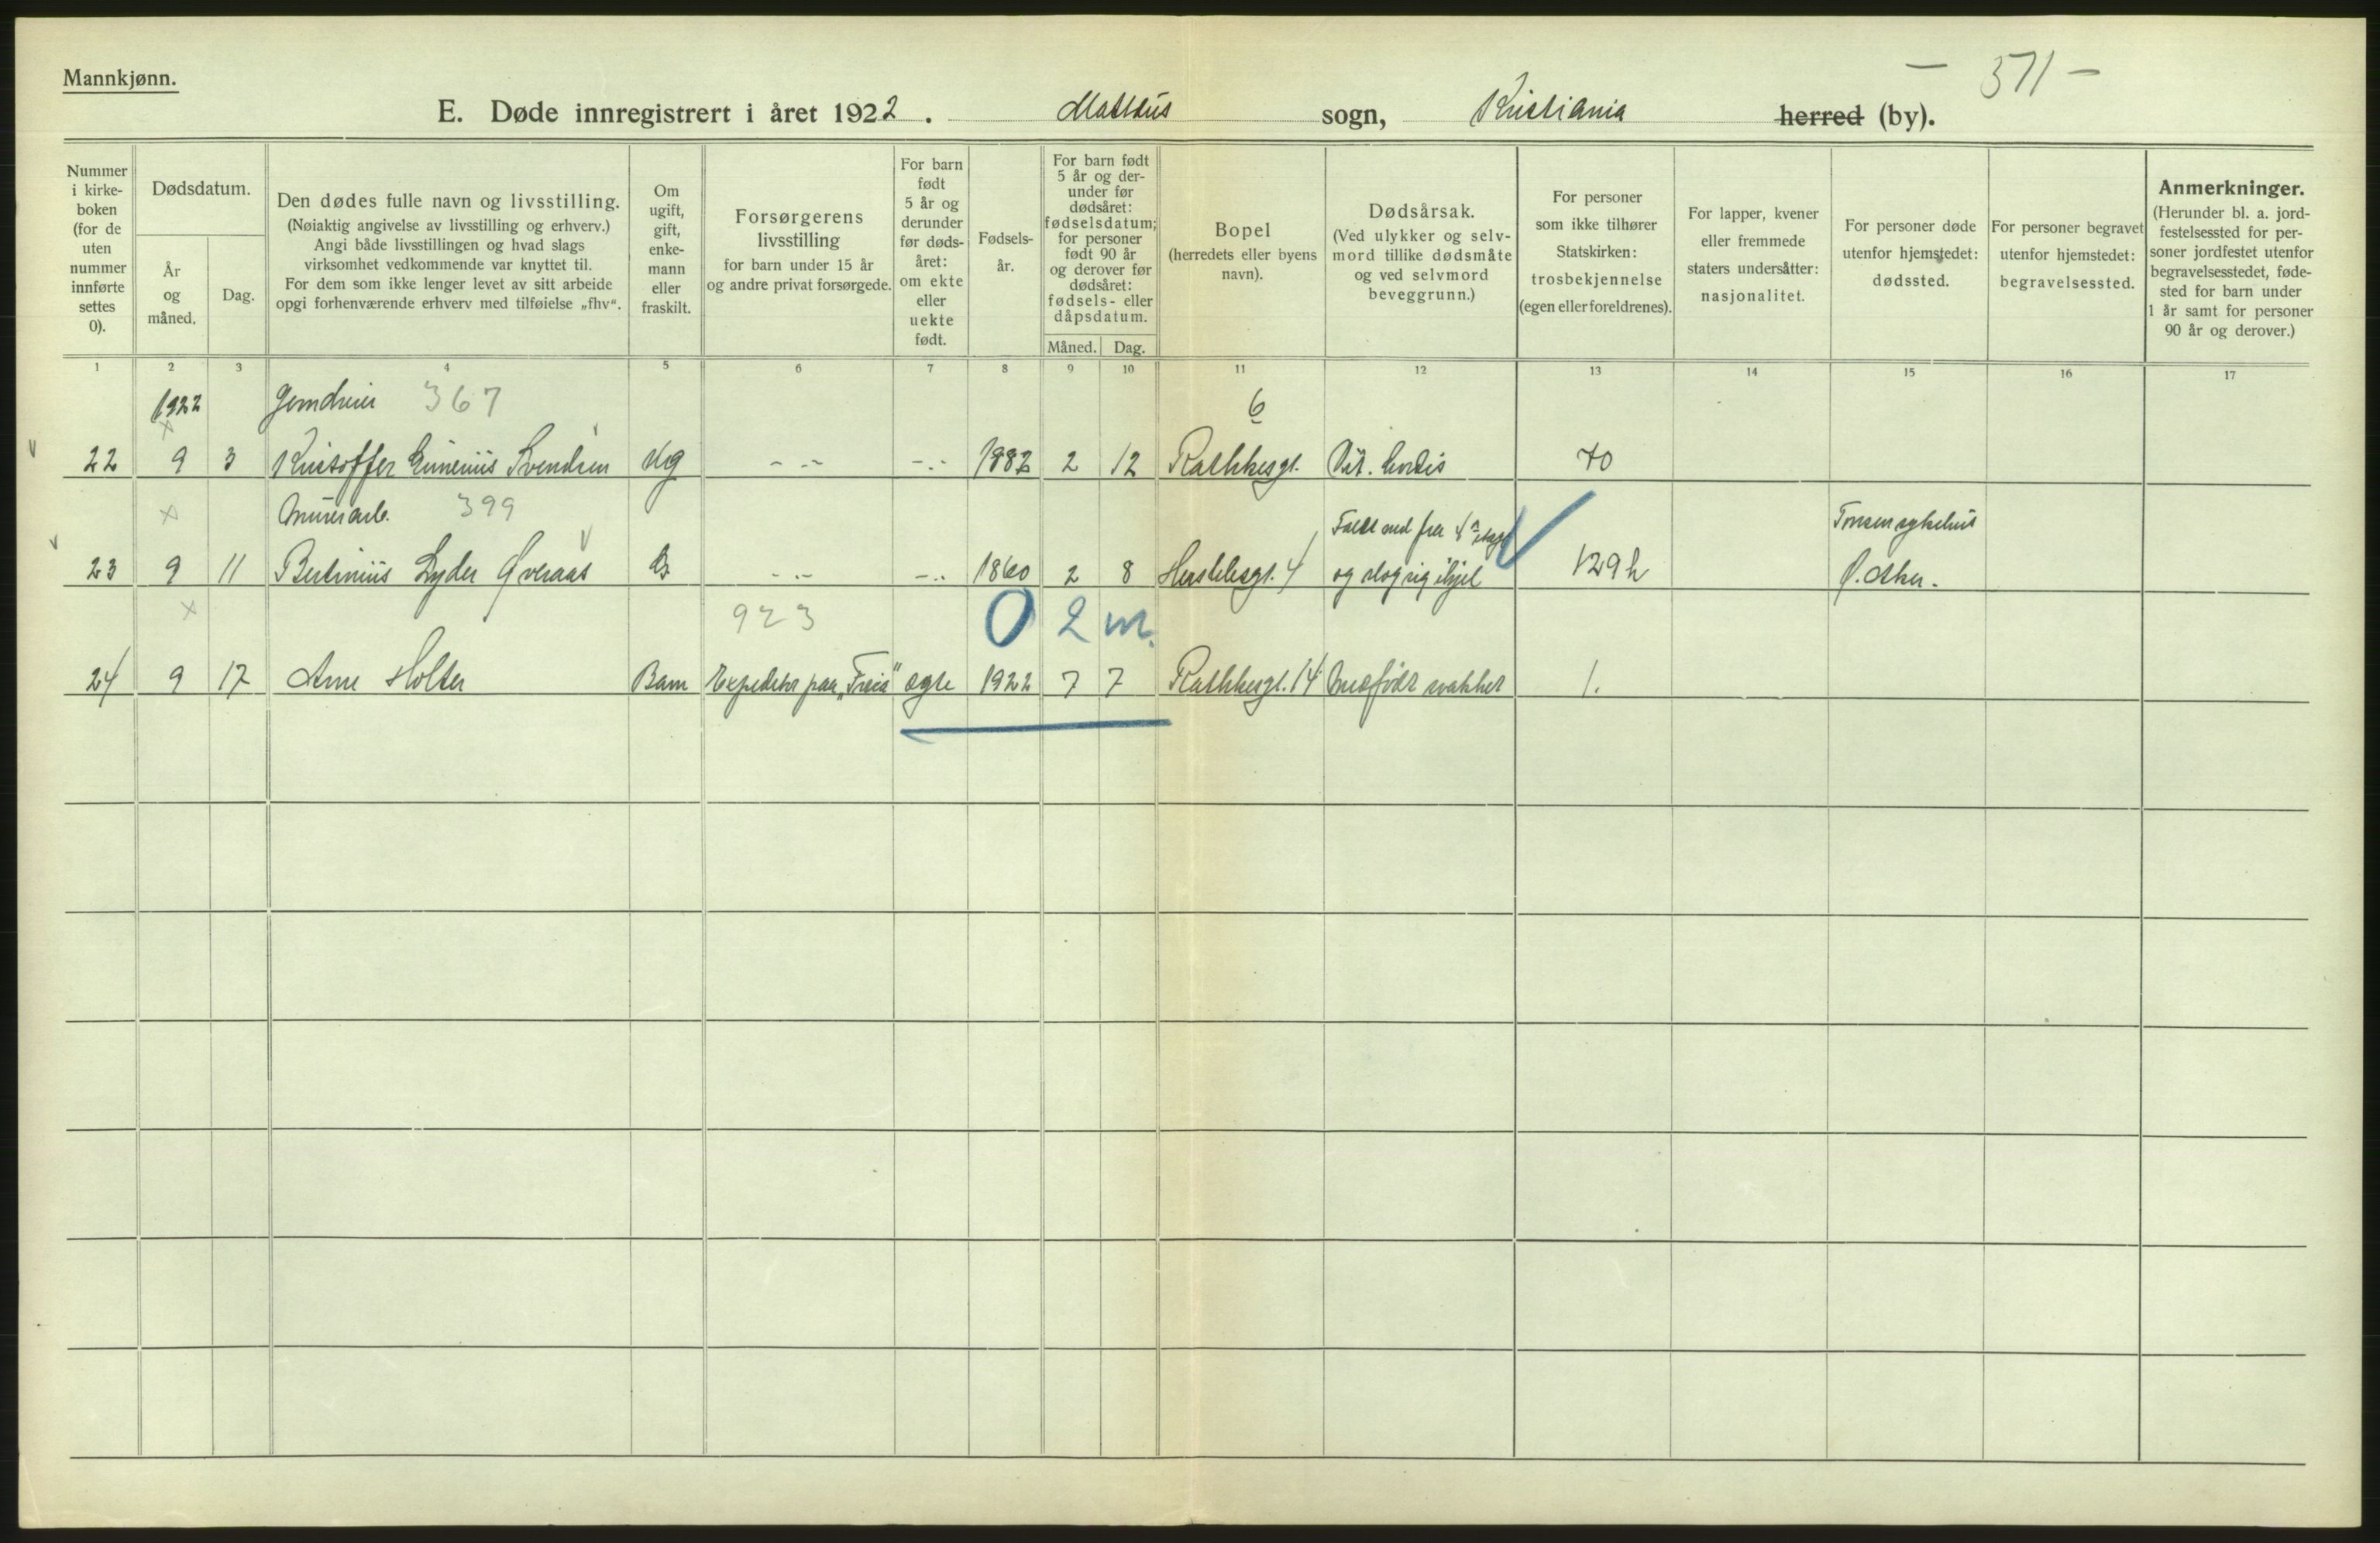 Mannkjønn.
— 371 —
E. Døde innregistrert i året 1922. Mattæus sogn, Kristiania herred (by).
Nummer i kirke-boken (for de uten nummer innførte settes 0).
Dødsdatum.
År og måned.
Dag.
Den dødes fulle navn og livsstilling.
(Nøiaktig angivelse av livsstilling og erhverv.)
Angi både livsstillingen og hvad slags
virksomhet vedkommende var knyttet til.
For dem som ikke lenger levet av sitt arbeide
opgi forhenværende erhverv med tilføielse „fhv“.
Om ugift, gift, enke-mann eller fraskilt.
Forsørgerens livsstilling
for barn under 15 år
og andre privat forsørgede.
For barn født 5 år og derunder før døds-året: om ekte eller uekte født.
Fødsels-år.
For barn født 5 år og der-under før dødsåret: fødselsdatum; for personer født 90 år og derover før dødsåret: fødsels- eller dåpsdatum.
Måned.
Dag.
Bopel
(herredets eller byens navn).
Dødsårsak.
(Ved ulykker og selv-mord tillike dødsmåte og ved selvmord beveggrunn.)
For personer som ikke tilhører Statskirken: trosbekjennelse (egen eller foreldrenes).
For lapper, kvener eller fremmede staters undersåtter: nasjonalitet.
For personer døde utenfor hjemstedet: dødssted.
For personer begravet utenfor hjemstedet: begravelsessted.
Anmerkninger.
(Herunder bl. a. jord-festelsessted for per-soner jordfestet utenfor begravelsesstedet, føde-sted for barn under 1 år samt for personer 90 år og derover.)
1 2 3 4 5 6 7 8 9 10 11 12 13 14 15 16 17
1922 367 6
22 9 3 Kristoffer Svendsen Ug - .- -.- 1882 2 12 Rathkesgt. Vit. cordis 70
x Murerarb. 399 Faldt ned fra 4 etage Tonsen sykehus
23 9 11 Bertinius Lyder Øveraas G - .- -.- 1860 2 8 Herslebsgt. 4 og slog sig ihjel 129 h Ø. Aker.
x 923 0 2 m.
24 9 17 Arne Holter Barn Expeditør paa „Freia“ egte 1922 7 7 Rathkesgt. 14 Medfødt svakhet 1.